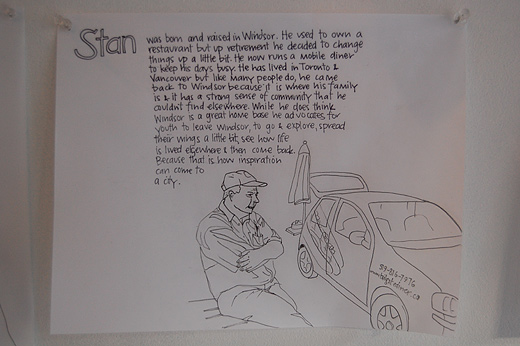 Stan was born and raised in Windsor. He used to own a
restaurant but up retirement he decided to change
things up a little bit. He now runs a mobile diner
to keep his days busy. He has lived in Toronto &
Vancouver but like many people do, he came
back to Windsor because it is where his family
is & it has a strong sense of community that he
couldn't find elsewhere. While he does think
Windsor is a great home base he advocates, for
youth to leave Windsor, to go & explore, spread
their wings a little bit, see how life
is lived elsewhere & then come back.
Because that is how inspiration
can come to
a city.